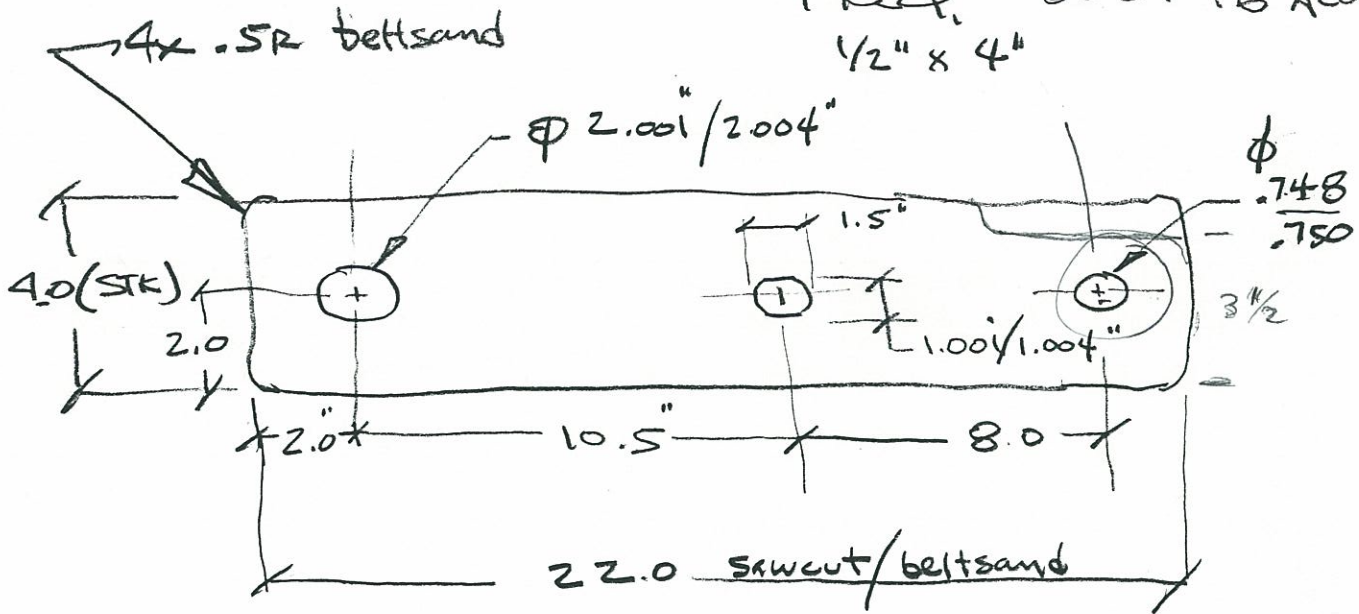 4x .5R beltsand
1/2" x 4"
φ 2.001"/2.004"
φ
.748
.750
1.5"
4.0 (STK)
2.0
3 1/2
1.001/1.004"
2.0"
10.5"
8.0
22.0 sawcut/beltsand